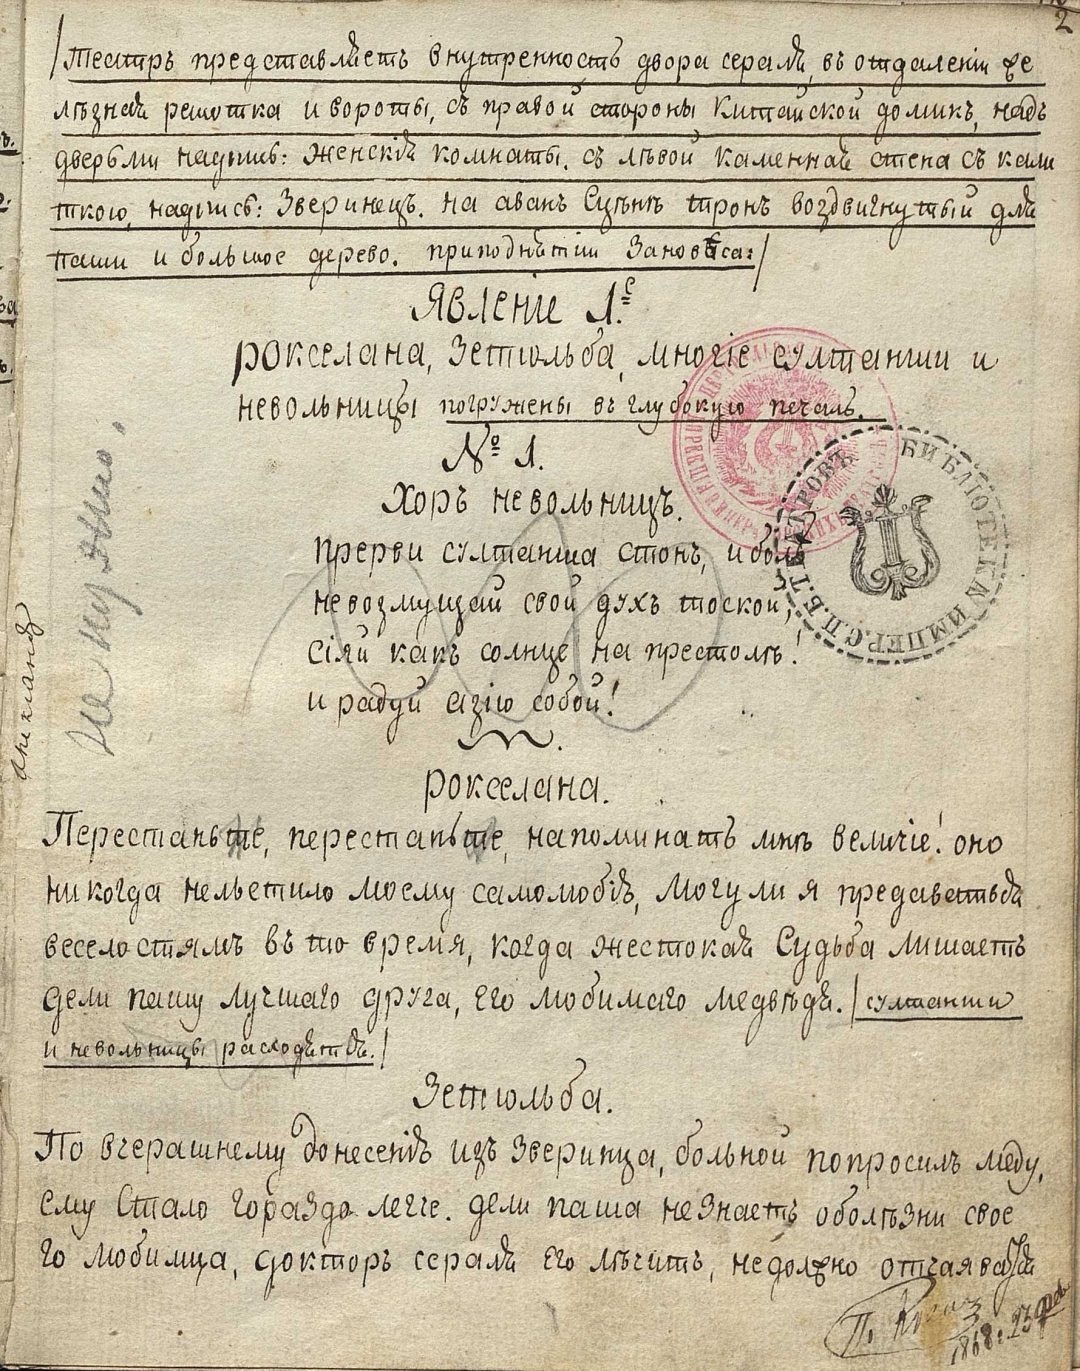 2
/Театръ представляетъ внутренность двора сераля, въ отдаленіи же
лѣзная решотка и вороты, съ правой стороны Китайской домикъ, надъ
дверьми надпись: женскія комнаты. съ лѣвой каменная стена съ кали
ткою, надпись: Зверинецъ. на аванъ Сценѣ тронъ воздвигнутый для
паши и большое дерево. приподнятіи Занавѣса:/
Явленіе 1.е
Рокселана, Зетюльба, многіе султанши и
невольницы погружены въ глубокую печаль.
№ 1.
Хоръ невольницъ.
Прерви султанша стонъ, и боль
невозмущай свой духъ тоской,
Сіяй какъ солнце на престолѣ!
и радуй азію собой!
Рокселана.
Перестаньте, перестаньте, напоминать мнѣ величіе! оно
никогда нельстило моему самолюбію, Могу ли я предаваться
веселостямъ въ то время, когда жестокая Судьба лишаетъ
дели пашу лучшаго друга, его любимаго медвѣдя. /султанши
и невольницы расходятся./
Зетюльба.
По вчерашнему донесенію изъ Зверинца, больной попросилъ меду,
ему Стало гораздо легче. дели паша незнаетъ оболѣзни свое
го любимца, докторъ сераля его лѣчитъ, недолжно отчаяваться
БИБЛІОТЕКА ИМПЕР. С.П.Б. ТЕАТРОВЪ
1868: 23 фев